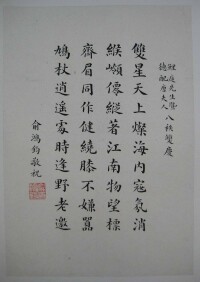 鯉庭先生暨
德配夫人
八秩雙慶
雙星天上燦海內寇氛消
緱嶺僊蹤著江南物望標
齊眉同作健繞膝不嫌囂
鳩杖逍遙處時逢野老邀
俞鴻鈞敬祝